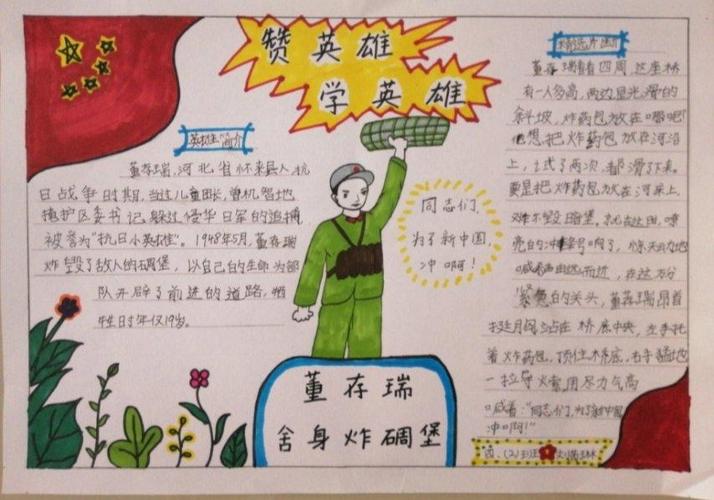 赞英雄
学英雄
英雄简介
董存瑞,河北省怀来县人,抗
日战争时期,当过儿童团长,曾机智地
掩护区委书记躲过侵华日军的追捕
被誉为"抗日小英雄"。1948年5月,董存瑞
炸毁了敌人的碉堡,以自己的生命为部
队开辟了前进的道路,牺
牲时年仅19岁。
同志们,
为了新中国,
冲啊!
董存瑞
舍身炸碉堡
精选片断
董存瑞看看四周,这座桥
有一人多高,两边是光滑的
斜坡,炸药包放在哪吧
他想把炸药包放在河沿
上,试了两次,都滑下来。
要是把炸药包放在河床上,
炸不毁暗堡。就在这时,嘹
亮的冲锋号响了,惊天动地
喊声由远而近,在这万分
紧急的关头,董存瑞昂首
挺胸站在桥底中央,左手托
着炸药包,顶住桥底,右手猛地
一拉导火索,用尽力气高
喊着:"同志们,为了新中国
冲啊!"
四、(2)班